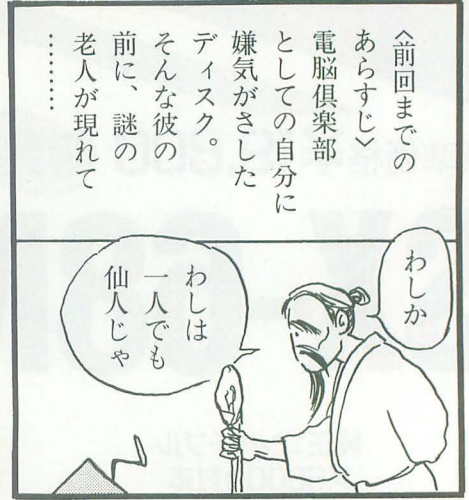 〈前回までの
あらすじ〉
電脳倶楽部
としての自分に
嫌気がさした
ディスク。
そんな彼の
前に、謎の
老人が現れて
………
わしか
わしは
一人でも
仙人じゃ